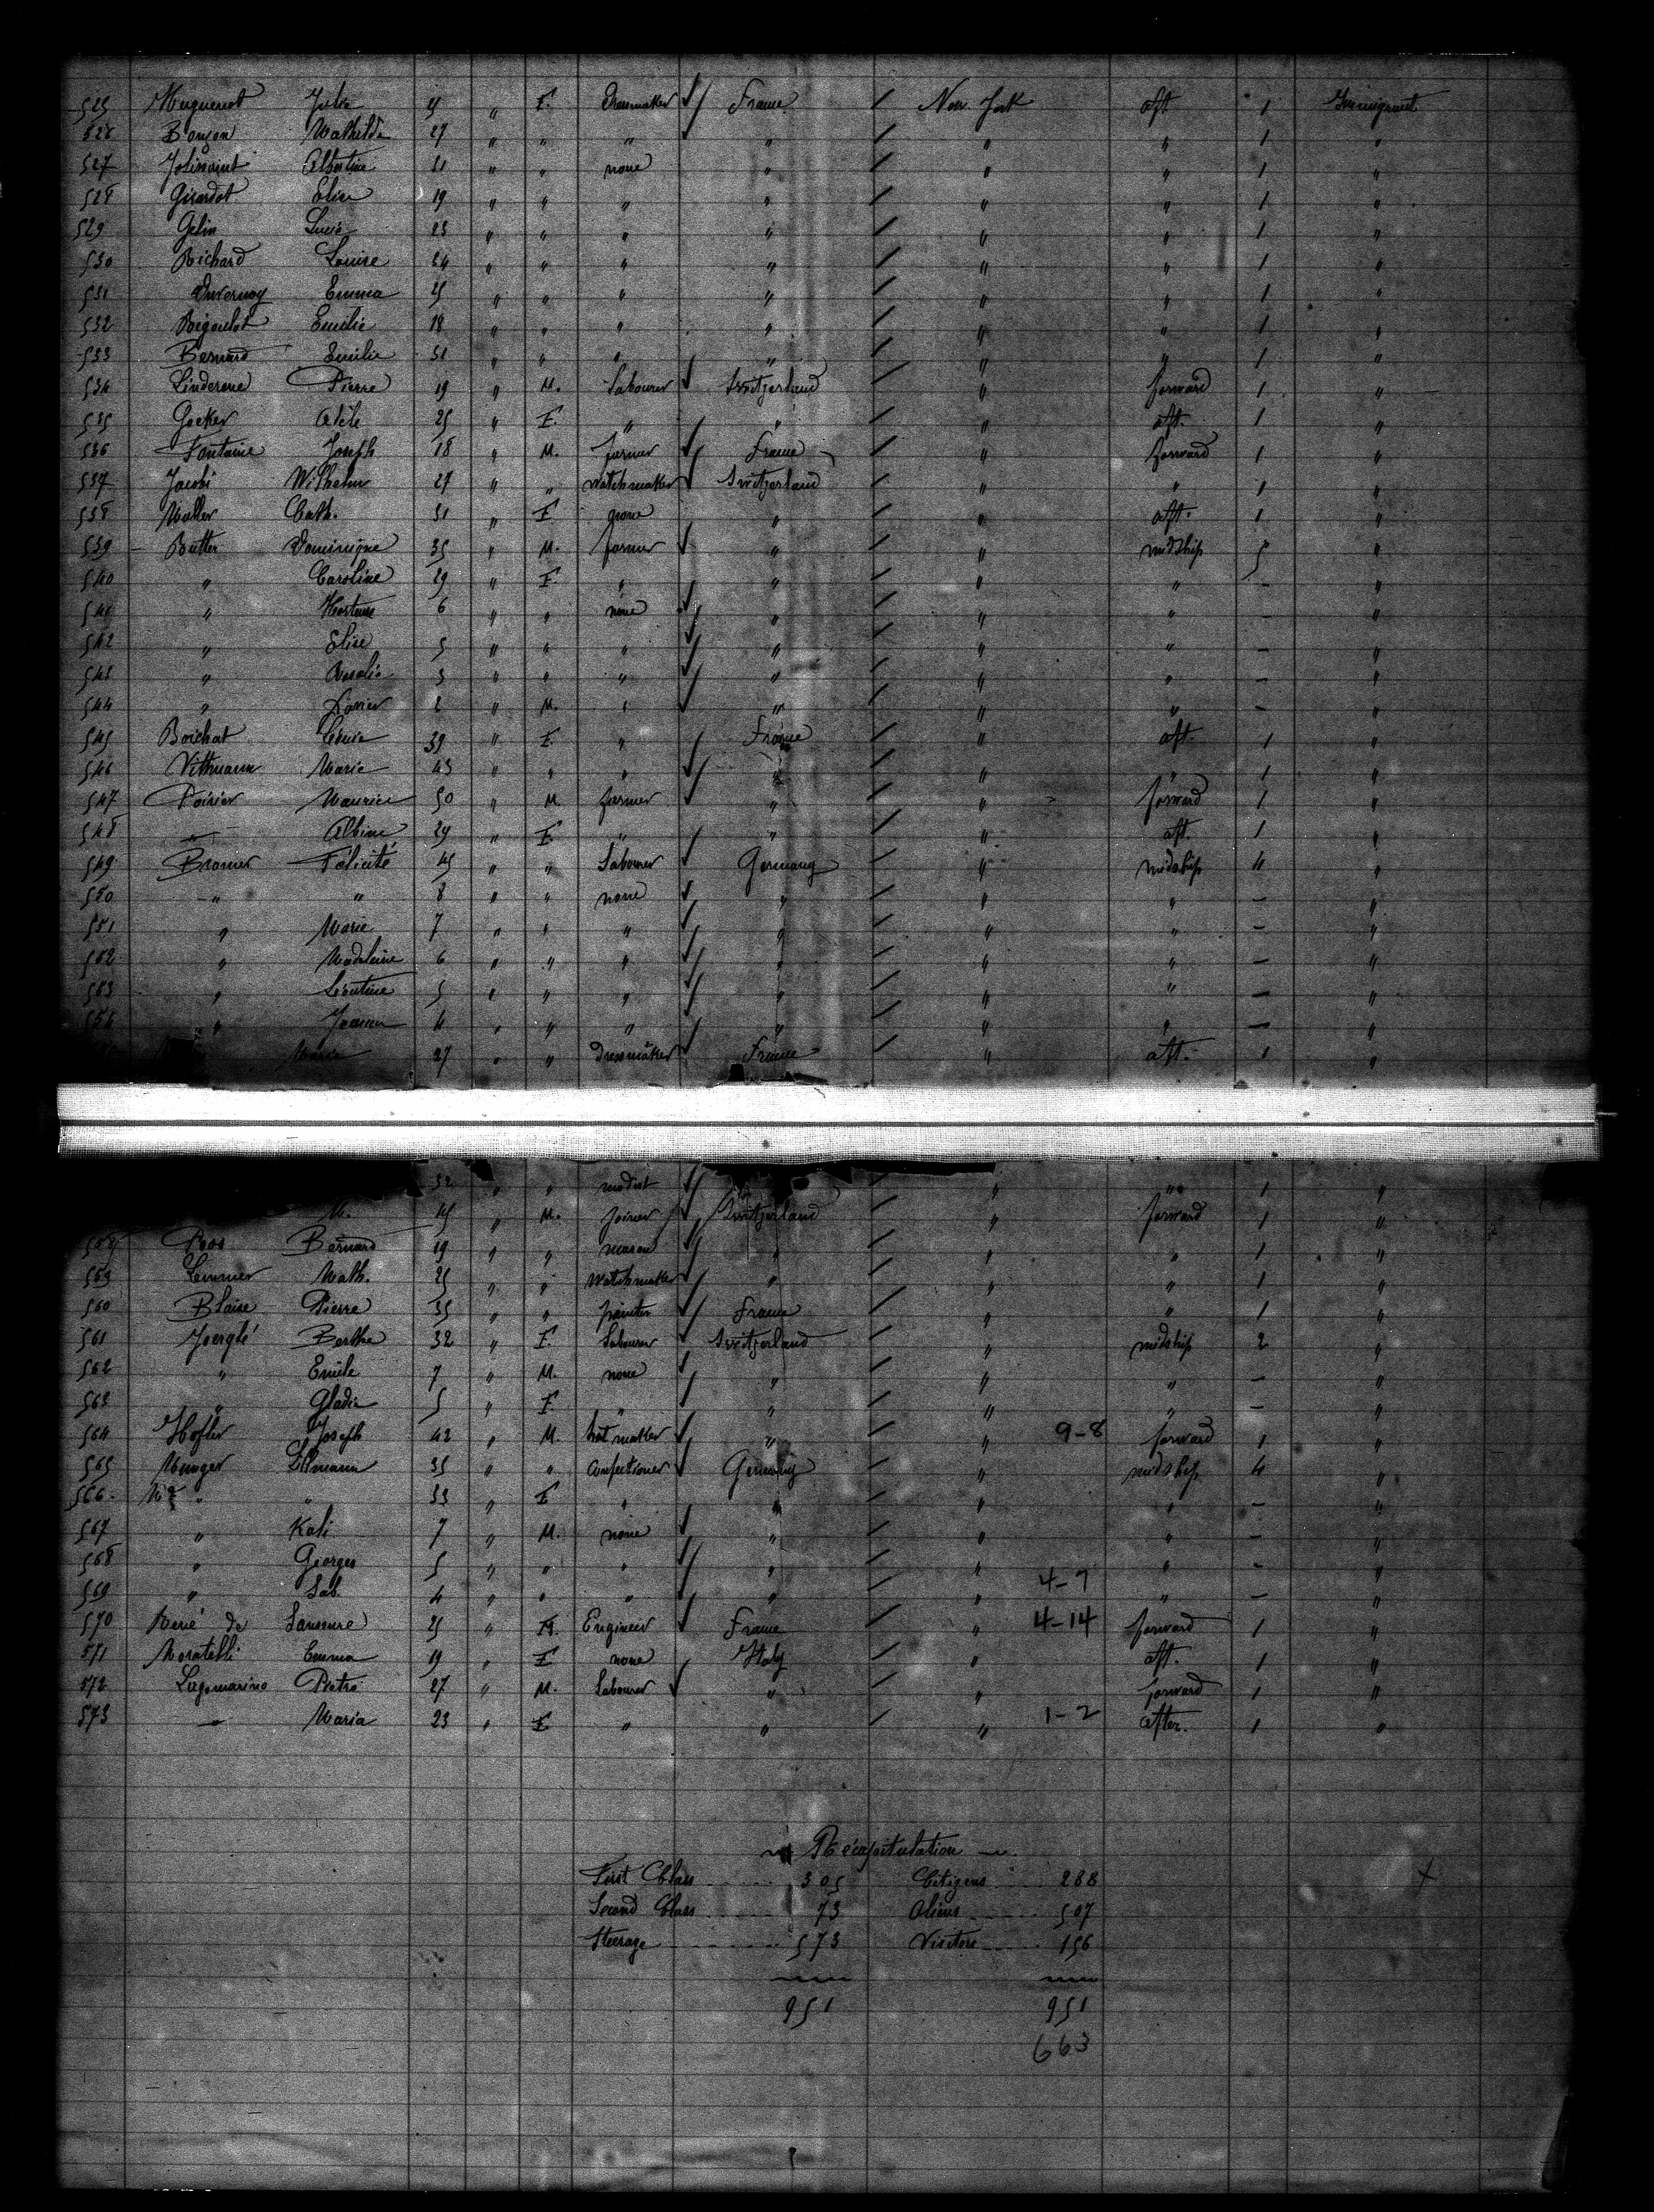 525 Huguenot Julie " F. Dressmaker France New York aft. 1 Immigrant
526 Bouzon Mathilde 27 " " " " " " 1 "
527 Albertine 31 " " none " " " 1 "
528 Girardot Elise 19 " " " " " " 1 "
529 Gelin Lucie 23 " " " " " " 1 "
530 Richard Louise 24 " " " " " " 1 "
531 Duvernoy Emma 25 " " " " " " 1 "
532 Bigoulot Emilie 18 " " " " " " 1 "
533 Bernard Emilie 31 " " " " " " 1 "
534 Pierre 19 " M. Labourer Switzerland " forward 1 "
535 Gecker Adèle 25 " F. " " " aft. 1 "
536 Fontaine Joseph 18 " M. farmer France " forward 1 "
537 Jacobi Wilhelm 27 " " watchmaker Switzerland " " 1 "
538 Muller Cath. 31 " F none " " aft. 1 "
539 Butter Dominique 35 " M. farmer " " midship 5 "
540 " Caroline 29 " F. " " " " - "
541 " Hortense 6 " " none " " " - "
542 " Elise 5 " " " " " " - "
543 " Rosalie 3 " " " " " " - "
544 " Xavier 2 " M. " " " " - "
545 Boichat Louise 39 " F. " France " aft. 1 "
546 Vittmann Marie 43 " " " " " " 1 "
547 Poirier Maurice 50 " M. farmer " " forward 1 "
548 " Albine 29 " F. " " " aft. 1 "
549 Bromer Félicité 45 " " Labourer Germany " midship 4 "
550 " " 8 " " none " " " - "
551 " Marie 7 " " " " " " - "
552 " Madeleine 6 " " " " " " - "
553 " Léontine 5 " " " " " " - "
554 " Jeanne 4 " " " " " " - "
Marie 27 " " dressmaker France " aft. 1 "
32 " " modist " " " 1 "
M. 45 " M. joiner Switzerland " forward 1 "
558 Poos Bernard 19 " " mason " " " 1 "
559 Lemmer Math. 25 " " watchmaker " " " 1 "
560 Blaise Pierre 35 " " painter France " " 1 "
561 Joerglé Berthe 32 " F. Labourer Switzerland " midship 2 "
562 " Emile 7 " M. none " " " - "
563 " Gladie 5 " F. " " " " - "
564 Hofler Joseph 42 " M. hat maker " " 9-8 forward 1 "
565 Munger Ellmann 35 " " confectioner Germany " midship 4 "
566 Me " " 33 " F " " " " - "
567 " Kali 7 " M. none " " " - "
568 " Georges 5 " " " " " " - "
569 " Sab. 4 " " " " " 4-7 " - "
570 René de Saussure 25 " M. Engineer France " 4-14 forward 1 "
571 Moratelli Emma 19 " F none Italy " aft. 1 "
572 Lagomarino Pietro 27 " M. Labourer " " forward 1 "
573 " Maria 23 " F. " " " 1-2 after. 1 "
Récapitulation
First Class 305 Citizens 288
Second Class 73 Aliens 507
Steerage 573 Visitors 156
951 951
663